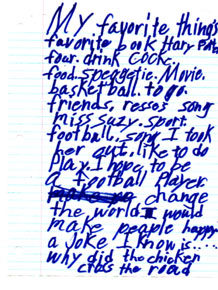 My favorite things
favorite book Hary Potter
four. drink Cocke.
food. speggetie. Movie.
basketball. to go.
friends, resses song
miss suzy. sport.
football. song I took
her out. like to do
Play. I hope to be
a football player
change
the world I would
make people happy
a Joke I know is....
why did the chicken
cross the road